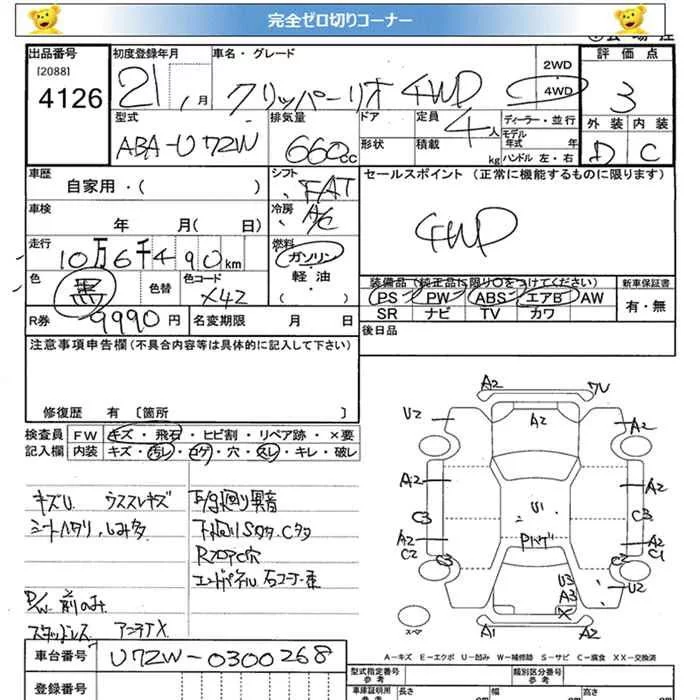 完全ゼロ切りコーナー
出品番号 初度登録年月 車名・グレード 評価点
[2088]
4126 21 1月 クリッパーリオ 4WD 2WD 4WD 3
型式 排気量 ドア 定員 ディーラー・並行 外装 内装
ABA-U72W 660cc 4人 モデル年式 年 D C
形状 積載 kg ハンドル 左・右
車歴 シフト セールスポイント (正常に機能するものに限ります)
自家用・( ) FAT
車検 冷房 A/C 4WD
年 月( 日)
走行 10万6千490km 燃料 ガソリン・軽油・( )
色 黒 色替 色コード X42
装備品(純正品に限り○をつけてください) 新車保証書
PS PW ABS エアB AW 有・無
SR ナビ TV カワ
R券 9990円 名変期限 月 日
後日品
注意事項申告欄(不具合内容等は具体的に記入して下さい)
修復歴 有 〔箇所 〕
検査員 FW キズ・飛石・ヒビ割・リペア跡・×要
記入欄 内装 キズ・汚レ・コゲ・穴・スレ・キレ・破レ
キズU. ウススレキズ
シートヘタリ.シミ多
下廻りSタタ.Cタタ
RフロアC穴
エンドパネル右コーナー曲
P/W 前のみ
スタッドレス アンテナX
A2 A2 U2 A2
A2 A2
C3 U1 C3
A2 Pハゲ A2
C2 C3 C2 C1
U3 U2
A3
X
スペア A1 A2
A-キズ E-エクボ U-凹み W-補修跡 S-サビ C-腐食 XX-交換済
車台番号 U72W-0300268
型式指定番号 類別区分番号
参考 参考
登録番号
車庫証明用 長さ 幅 高さ